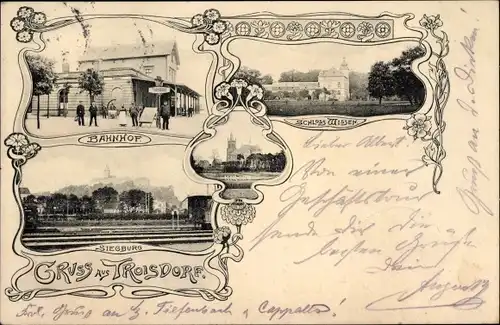 BAHNHOF
SCHLOSS WISSEM
SIEGBURG
GRUSS AUS TROISDORF.
Lieber Albert!
Von einer
Geschäftstour
sende dir die
besten Grüße
dein
August
Frdl. Gruß an H. Tiefenbach u Cappallo!
Gruß an